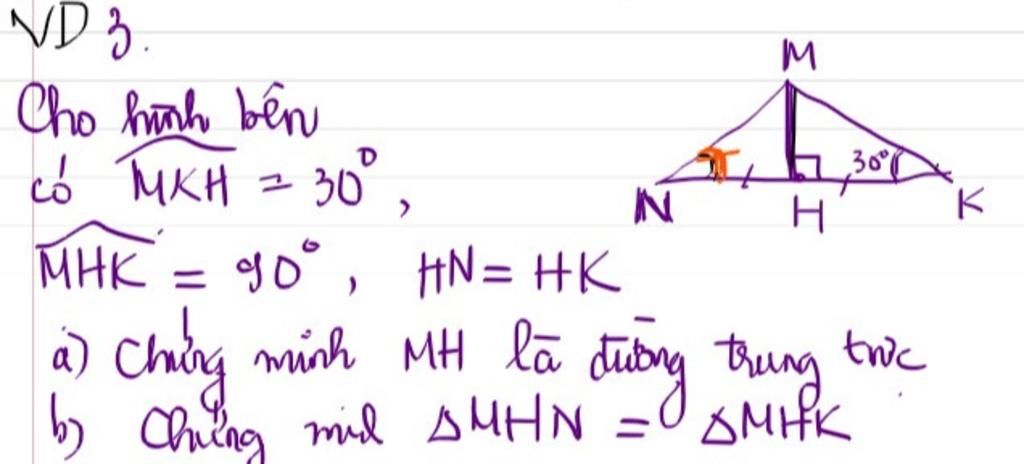 VD 3.
M
30°
N
H
K
Cho hình bên
có MKH = 30°,
MHK = 90°, HN = HK
a) Chứng minh MH là đường trung trực
b) Chứng mil ΔMHN = ΔMHK